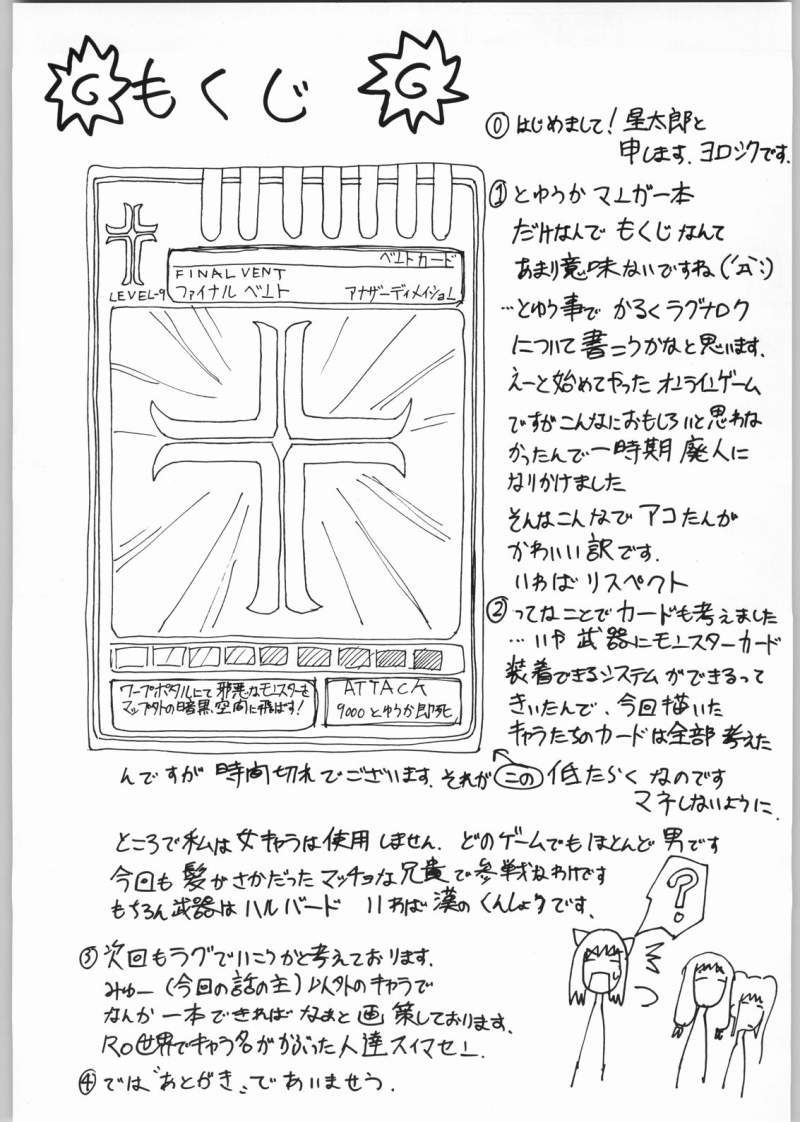 G もくじ G
⓪ はじめまして! 星太郎と
申します、ヨロシクです。
① とゆうかマンガ一本
だけなんで もくじなんて
あまり意味ないですね(´д`;)
…とゆう事で かるくラグナロク
について書こうかなと思います。
えーと始めてやったオンラインゲーム
ですがこんなにおもしろいと思わな
かったんで一時期 廃人に
なりかけました
そんなこんなで アコたんが
かわいい訳です。
いわば リスペクト
② ってなことでカードも考えました
武器にモンスターカード
装着できるシステムができるって
きいたんで、今回描いた
キャラたちのカードは全部考えた
んですが時間切れでございます。それが この 低たらくなのです
マネしないように。
LEVEL-9
ベントカード
FINAL VENT
ファイナルベント アナザーディメイション
ワープポタルにて邪悪なモンスターを
マップ外の暗黒空間に飛ばす!
ATTACK
9000とゆうか即死
ところで私は女キャラは使用しません。どのゲームでもほとんど男です
今回も髪がさかだったマッチョな兄貴で参戦なわけです
もちろん武器はハルバード いわば漢のくんしょうです、
③ 次回もラグでいこうかと考えております。
みゅー(今回の話の主)以外のキャラで
なんか一本できればなぁと画策しております。
RO世界でキャラ名がかぶった人達スイマセン。
④ では"あとがき"であいませう.
?